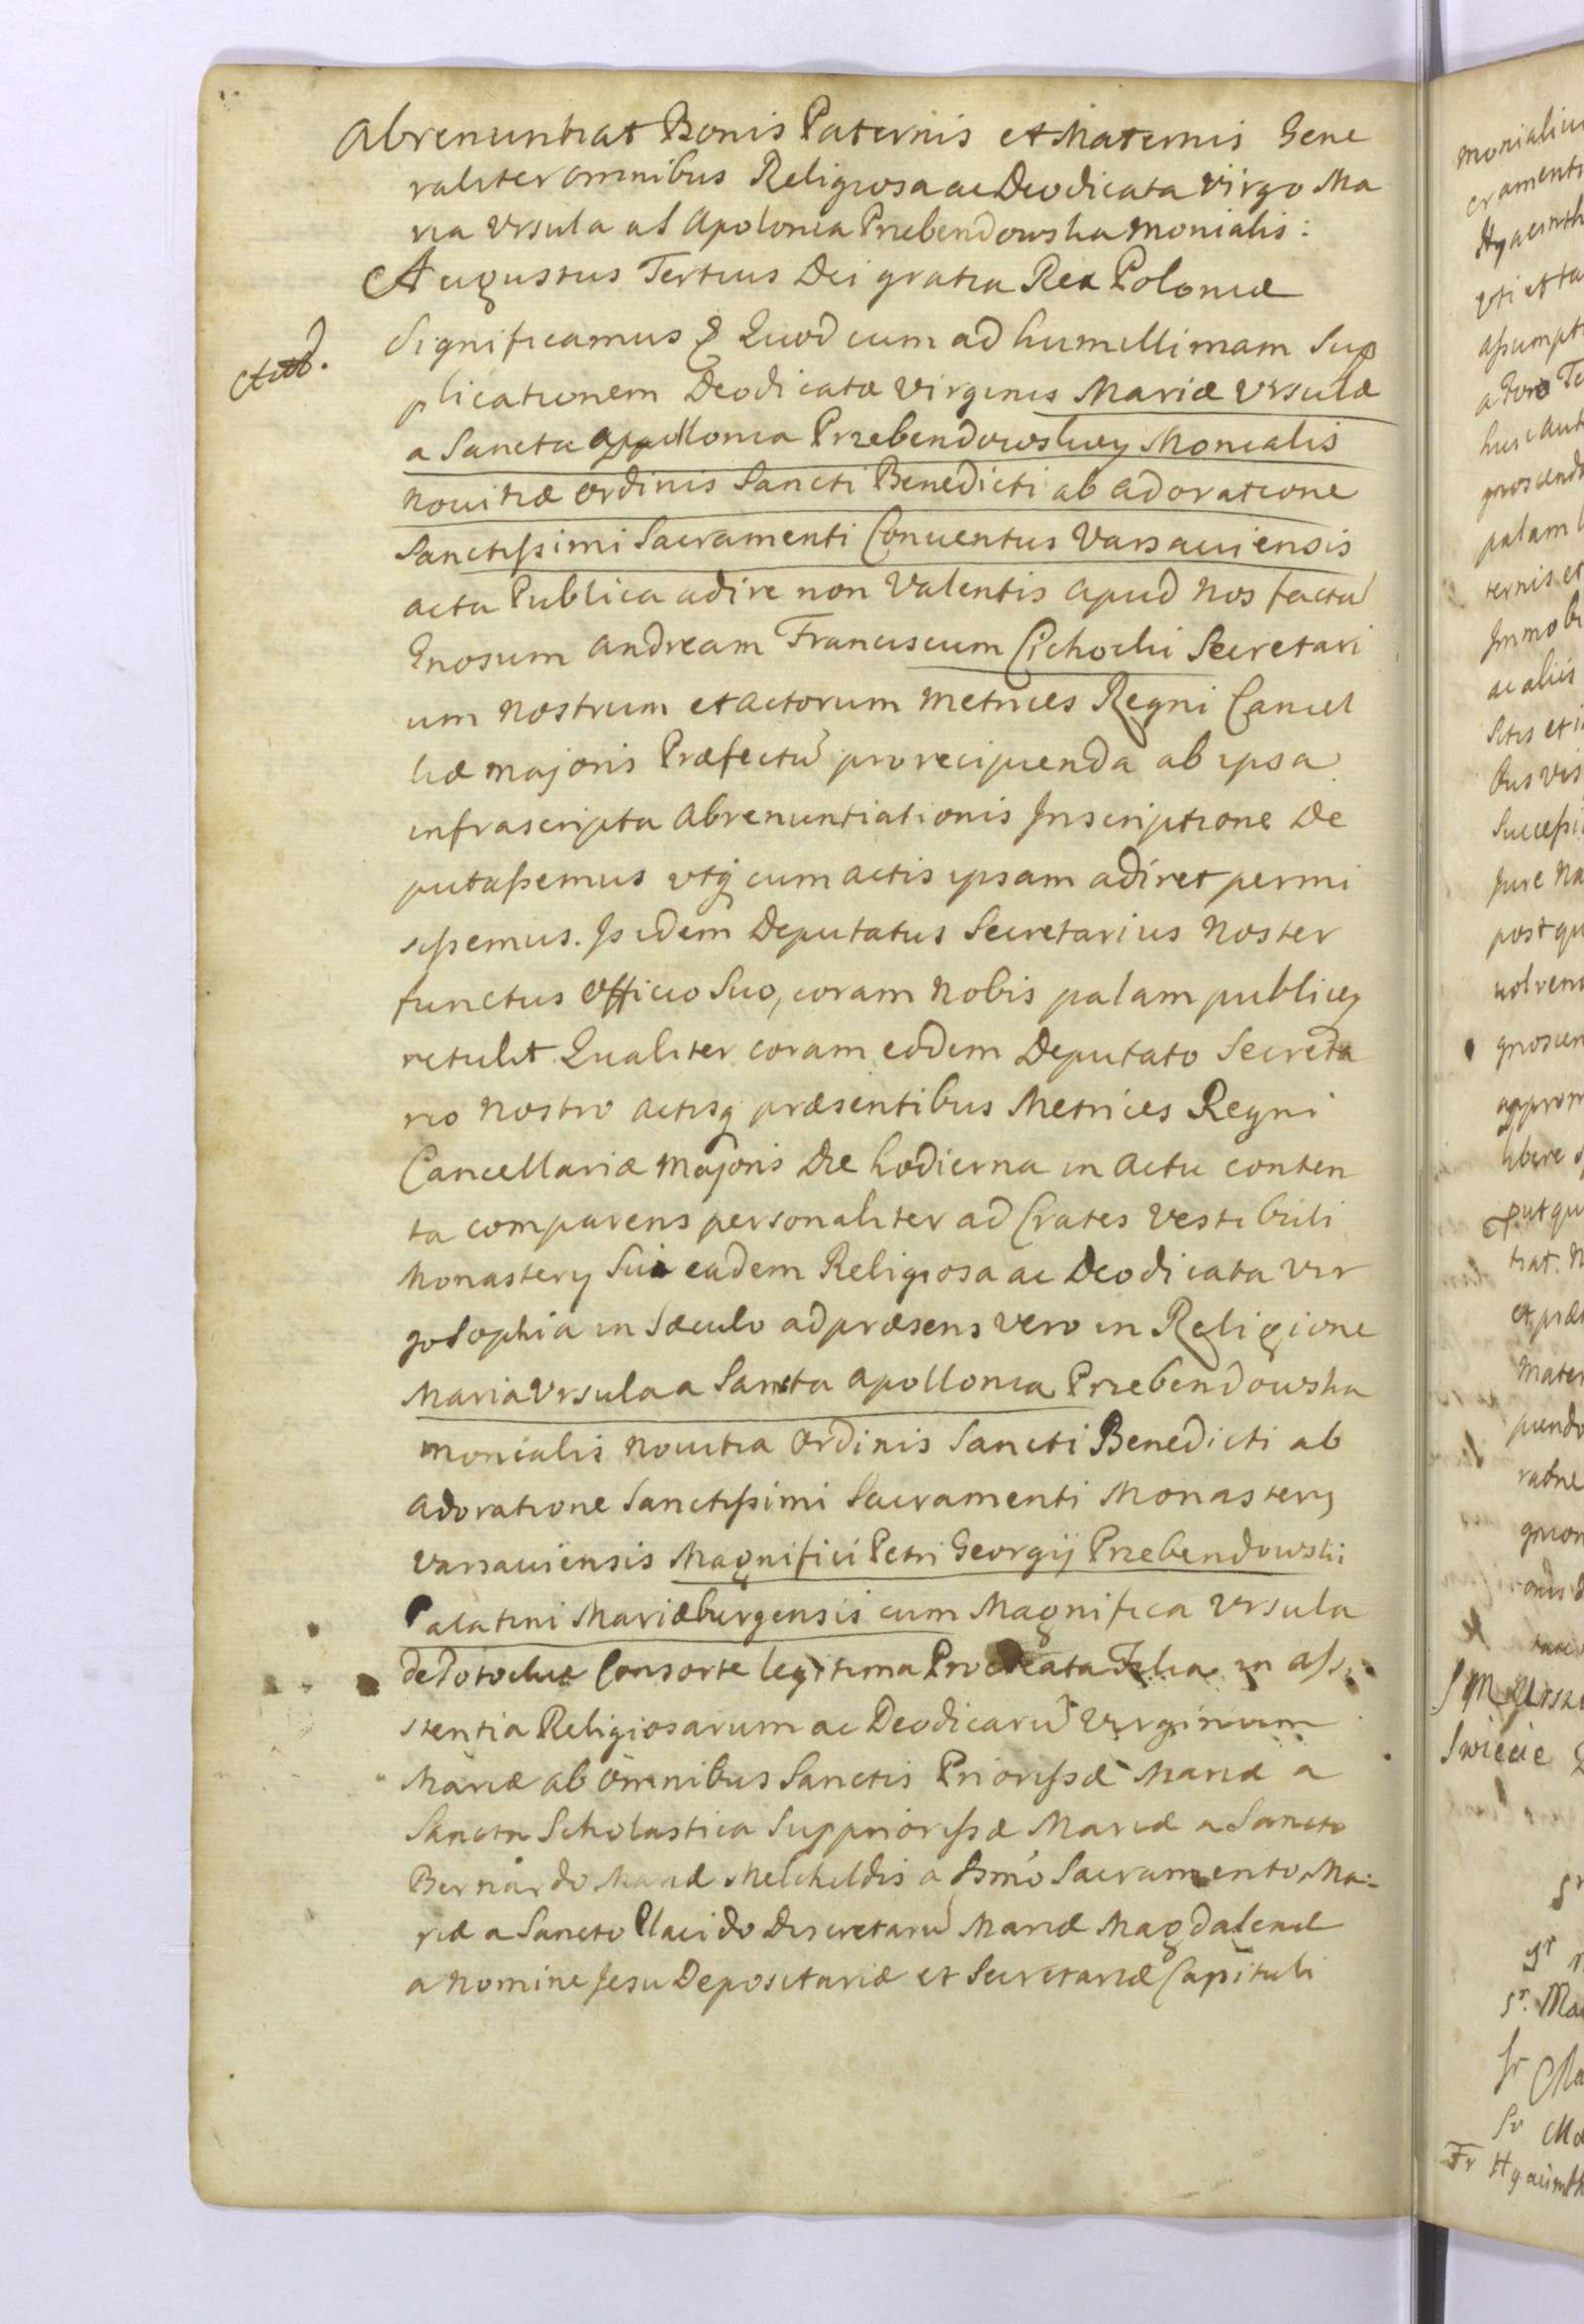 Abrenuntiat Bonis Paternis et Maternis Gene
raliter omnibus Religiosa ac Deodicata Virgo Ma
ria Vrsula a S Apolonia Przebendowska Monialis:
Augustus Tertius Dei gratia Rex Poloniæ
Significamus & Quod cum ad humillimam Sup
plicationem Deodicatæ Virginis Mariæ Vrsulæ
a Sancta Apollonia Przebendowskiey Monialis
Nouitiæ Ordinis Sancti Benedicti ab adoratione
Sanctissimi Sacramenti Conuentus Varsauiensis
acta Publica adire non Valentis apud Nos facta
Gnosum Andream Franciscum Cichocki Secretari
um Nostrum et Actorum Metrices Regni Cancel
liæ Majoris Præfectu pro recipienda ab ipsa
infrascripta Abrenuntiationis Inscriptione De
putassemus vtq cum actis ipsam adiret permi
sissemus. Is idem Deputatus Secretarius Noster
functus Officio Suo, coram Nobis palam publicq
retulit Qualiter coram eodem Deputato Secreta
rio Nostro Actisq præsentibus Metrices Regni
Cancellariæ Majoris Die hodierna in Actu conten
ta comparens personaliter ad Crates Vestibuli
Monastery Sui eadem Religiosa ac Deodicata Vir
go Sophia in Sæculo ad præsens vero in Religione
Maria Vrsula a Sancta Apollonia Przebendowska
Monialis Nouitia Ordinis Sancti Benedicti ab
Adoratione Sanctissimi Sacramenti Monastery
Varsauiensis Magnifici Petri Georgij Przebendowski
Palatini Mariæburgensis cum Magnifica Vrsula
de Potockie Consorte legitima Procreata Filia in assi
stentia Religiosarum ac Deodicaru Virginum
Mariæ ab Omnibus Sanctis Priorissæ Mariæ a
Sancta Scholastica Suppriorissæ Mariæ a Sancto
Bernardo Mariæ Mechtildis a Ssmo Sacramento Ma-
riæ a Sancto Placido Discretaru Mariæ Magdalenæ
a Nomine Jesu Depositariæ et Secretariæ Capituli